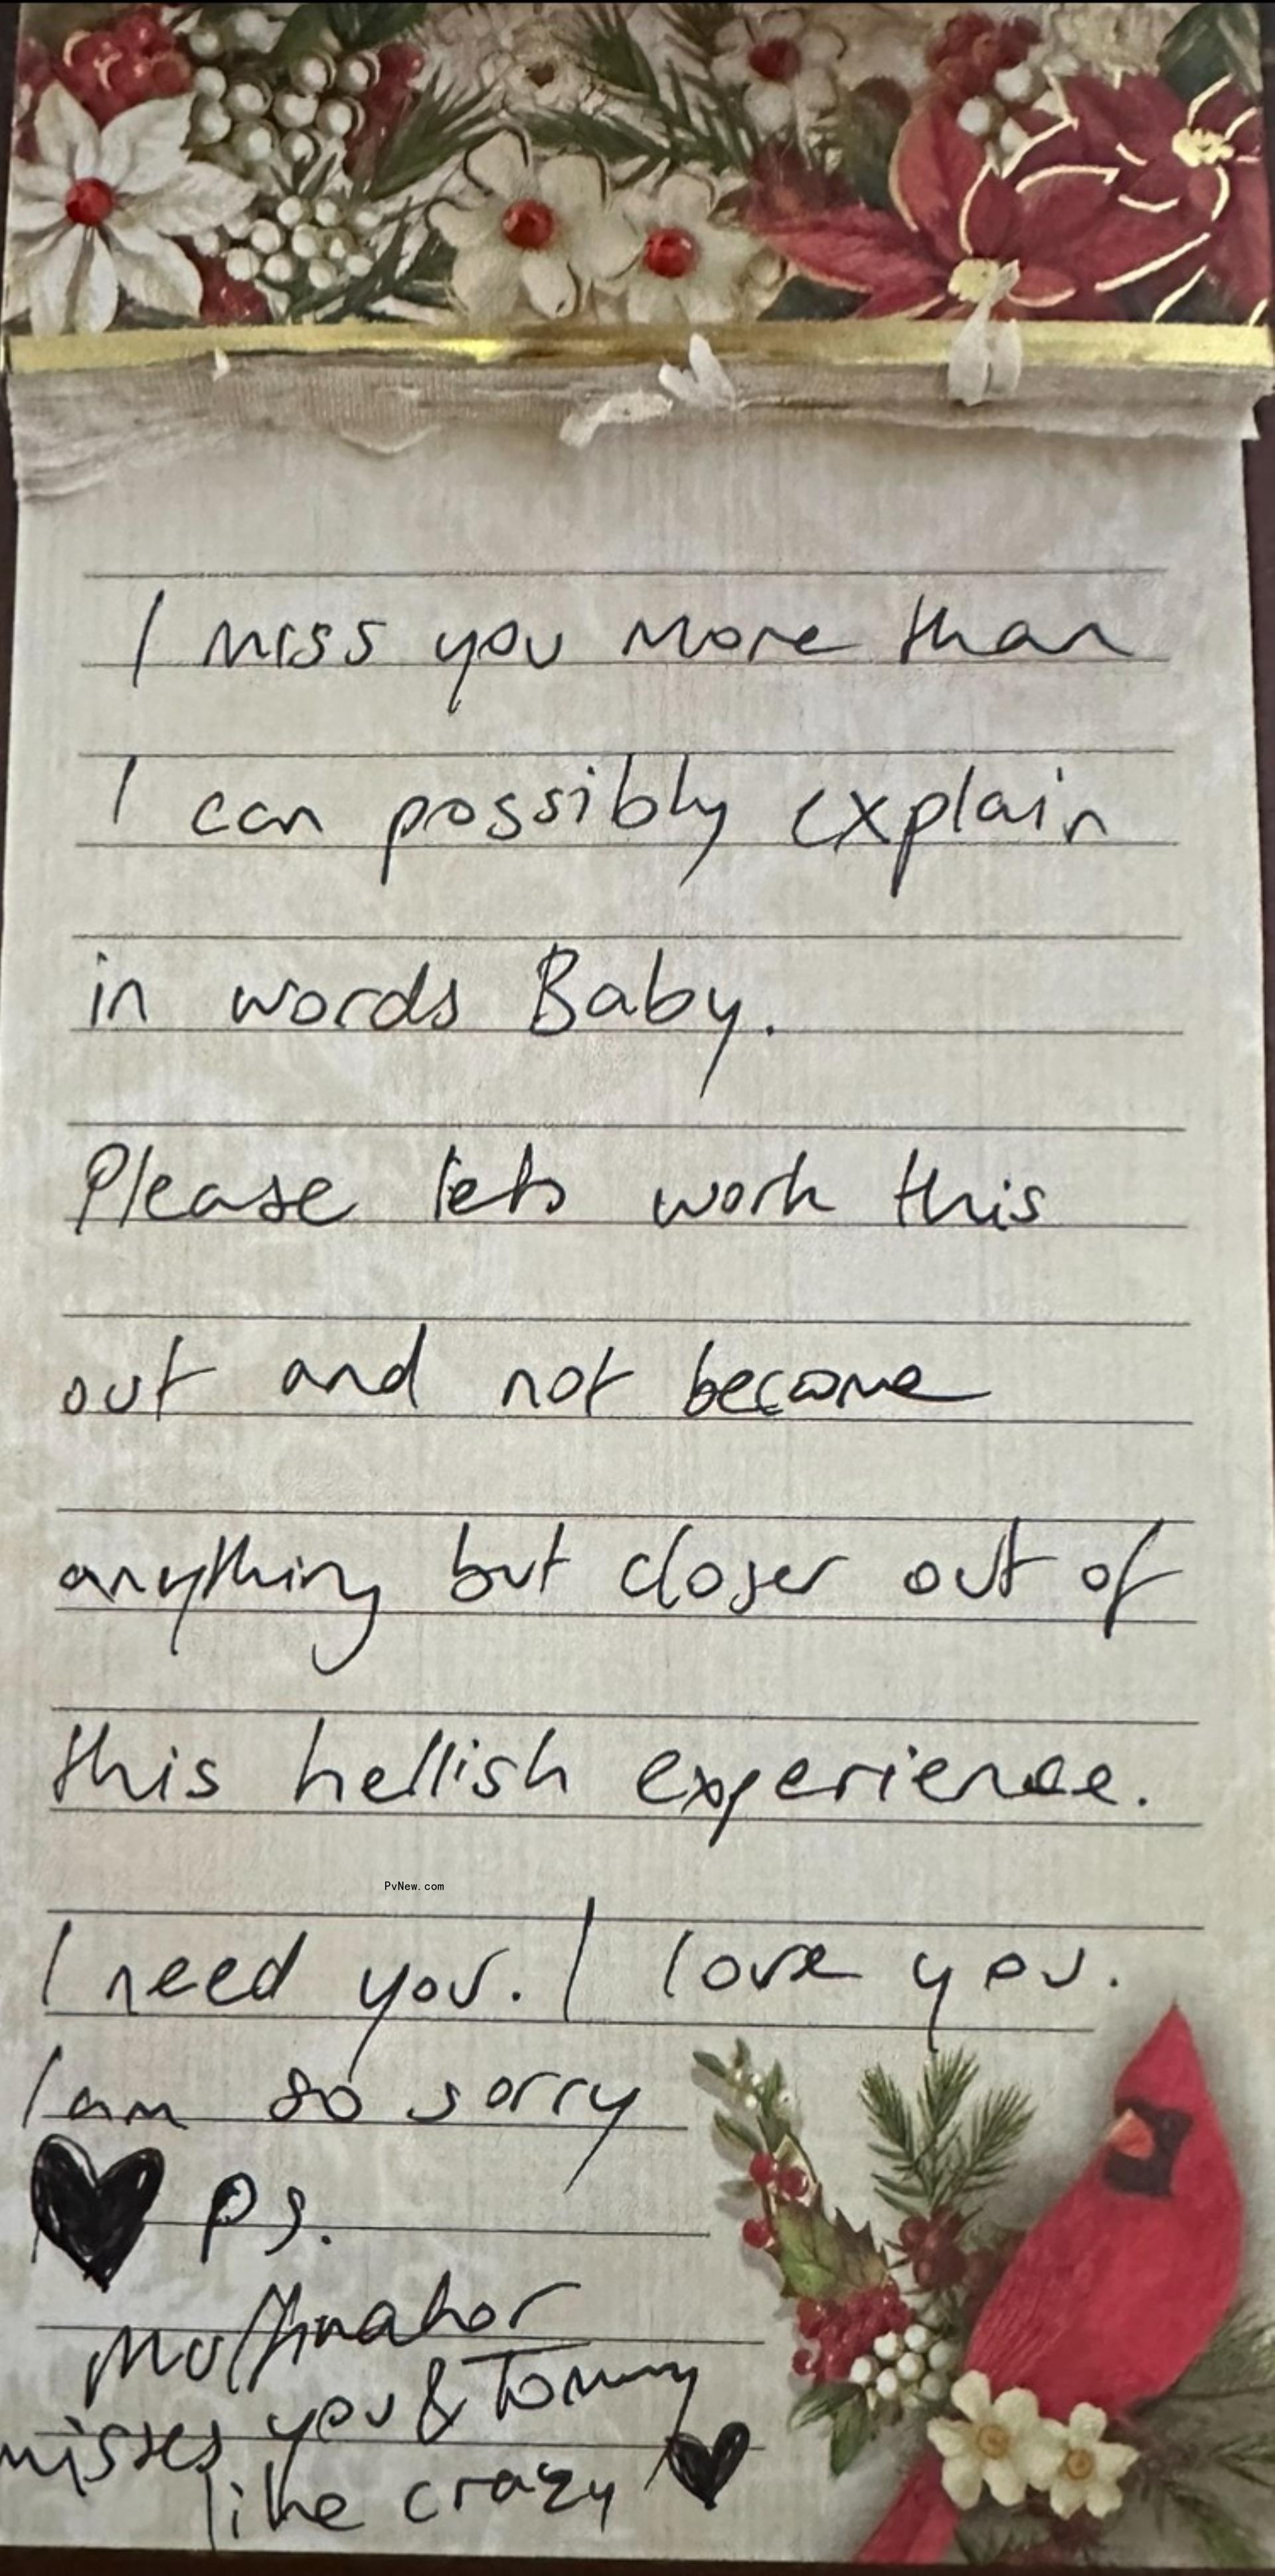 I miss you more than
I can possibly explain
in words Baby.
Please lets work this
out and not become
anything but closer out of
this hellish experience.
PvNew.com
I need you. I love you.
I am so sorry
♥ Ps.
Muffinator
misses you & Tommy
like crazy ♥